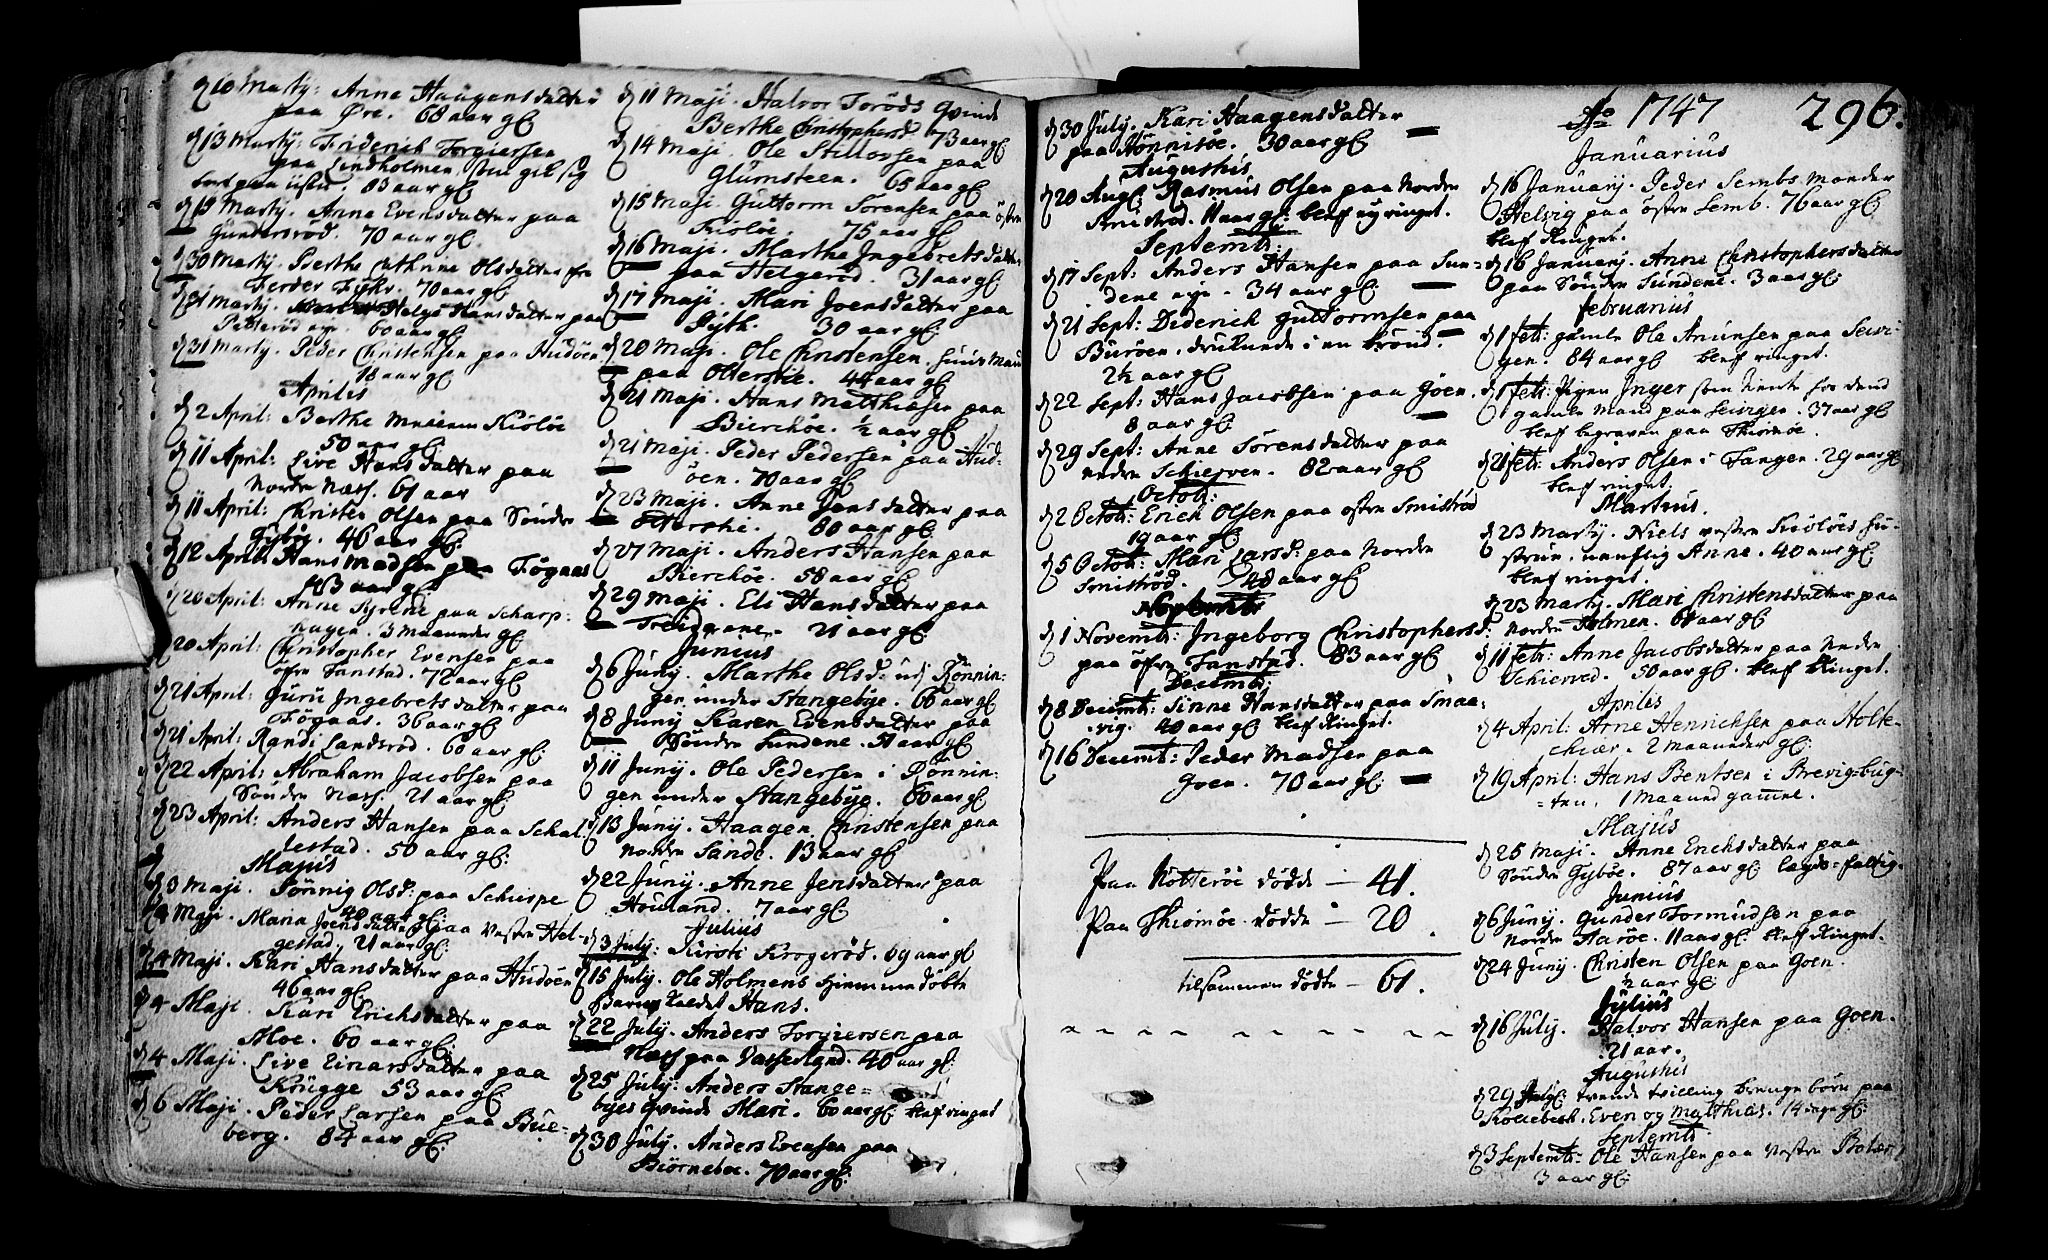 d 10 Martij: Anne Haagensdatter
paa Øre. 68 aar gl
d 13 Martij: Friderich Torgiersen
paa Lindholmen,
83 aar gl
d 19 Martij. Anna Evensdatter paa
Gundersrød. 70 aar gl.
d 30 Martij. Berthe Cathrine Olsdatter fra
Ferder Fyhr. 70 aar gl
d 31 Martij. Helge Hansdatter paa
Petterød eye. 60 aar gl
d 31 Martij. Peder Christensen paa Hudøen
18 aar gl
Aprilis
d 2 April: Berthe Kioløe
50 aar gl
d 11 April: Live Hansdatter paa
Nordre Næss. 61 aar
d 11 April: Christen Olsen paa Søndre
Gybøe. 46 aar gl:
d 12 April Hans Madsen paa Føgaas
63 aar gl
d 20 April: Anne Kyrene paa Scharp-
hagen. 3 maaneder gl
d 20 April: Christopher Evensen paa
øfre Fanstad. 72 aar gl
d 21 April: Guru Ingebretsdatter paa
Føgaas. 36 aar gl
d 21 April: Randi Landsrød. 60 aar gl:
d 22 April: Abraham Jacobsen paa
Søndre Næss. 21 aar gl:
d 23 April: Anders Hansen paa Schal-
lestad. 50 aar gl:
Majus
d 3 Maji. Tønnig Olsd: paa Schierpe
40 aar gl:
d 4 Maji. Maria Joensdatter paa Vestre Hel-
gestad. 21 aar gl:
d 4 Maji. Kari Hansdatter paa Hudøen
46 aar gl
d 4 Maji. Kari Erichsdatter paa
Moe. 60 aar gl:
d 4 Maji. Live Einarsdatter paa
Krugge 53 aar gl:
d 6 Maji. Peder Larsen paa Bue-
berg. 84 aar gl:
d 11 Maji. Halvor Torøds Qvinde
Berthe Christophersd 73 aar gl
d 14 Maji. Ole Stillovsen paa
Glumsteen. 65 aar gl
d 15 Maji. Guttorm Sørensen paa østre
Kioløe. 75 aar gl
d 16 Maji. Marthe Ingebretsdatter
paa Helgerød. 31 aar gl
d 17 Maji. Mari Joensdatter paa
Gyth. 30 aar gl
d 20 Maji. Ole Christensen, huusmand
paa Olterskie. 44 aar gl
d 21 Maji. Hans Matthiasen paa
Bierchøe. ½ aar gl
d 21 Maji. Peder Pedersen paa Hud-
øen. 70 aar gl
d 23 Maji. Anne Jensdatter paa
Olterskie. 80 aar gl:
d 27 Maji. Anders Hansen paa
Bierchøe. 58 aar gl:
d 29 Maji. Eli Hansdatter paa
Treidgrane. 21 aar gl:
Junius
d 6 Junij. Marthe Olsd: udj Rønnin-
gen under Stangebye. 66 aar gl
d 8 Junij Karen Evensdatter paa
Søndre Sundene. 51 aar gl
d 11 Junij. Ole Pedersen i Rønnin-
gen under Stangebye. 60 aar gl
d 13 Junij. Haagen Christensen paa
Nordre Sande. 13 aar gl
d 22 Junij. Anne Jensdatter paa
Houland. 7 aar gl
Julius
d 3 July: Kirsti Krogerød. 69 aar gl
d 15 July. Ole Holmens hiemmedøbte
Barn kaldet Hans.
d 22 July. Anders Torgiersen paa
Næss paa Vasserland. 40 aar gl:
d 25 July: Anders Stange-
byes Qvinde Mari. 60 aar gl: blef ringet
d 30 July. Anders Evensen paa
Biørneboe. 70 aar gl:
d 30 July. Kari Haagensdatter
paa Rønnisøe. 30 aar gl
Augustus
d 20 Aug: Rasmus Olsen paa Nordre
Smistrød. 11 aar gl: blef ey ringet.
Septembr:
d 17 Sept: Anders Hansen paa Sun-
dene eye. 34 aar gl:
d 21 Sept: Diderich Guttormsen paa
Burøen, druknede i en brønd.
2½ aar gl
d 22 Sept: Hans Jacobsen paa Goen.
8 aar gl:
d 29 Sept: Anne Sørensdatter paa
nedre Schierven. 82 aar gl
Octob:
d 2 Octob: Erich Olsen paa østre Smistrød
19 aar gl
d 5 Octob: Mari Larsd: paa Nordre
Smistrød. 48 aar gl
Novembr
d 1 Novemb: Ingeborg Christophersd:
paa øfre Fanstad. 83 aar gl
Decemb:
d 8 Decemb: Sinne Hansdatter paa Smaa-
vig. 40 aar gl blef ringet.
d 16 Decemb: Peder Madsen paa
Goen. 70 aar gl:
Paa Nøtterøe døde — 41.
Paa Thiømøe døde — 20.
tilsammen dødte — 61.
Ao 1747 296.
Januarius
d 16 Januarij. Peder Sembs Moeder
Helvig paa østre Semb. 76 aar gl:
blef ringet.
d 16 Januarij. Anne Christophersdatter
paa Søndre Sundene. 3 aar gl:
Februarius
d 1 Feb: gamle Ole Amunsen paa Leir-
gen. 84 aar gl blef ringet.
d 1 Feb: Pigen Inger som tiente hos dend
gamle mand paa Leirgen. 37 aar gl
blef begraven paa Thiømøe.
d 21 Feb: Anders Olsen i Tangen. 29 aar gl
blef ringet.
Martius.
d 23 Martij. Niels vestre Kioløes hu-
strue, nauflig Anne. 40 aar gl:
blef ringet.
d 23 Martij. Mari Christensdatter paa
Nordre Holmen. 61 aar gl
d 11 Feb: Anne Jacobsdatter paa Nedre
Schierved. 50 aar gl. blef ringet.
Aprilis
d 4 April: Arne Henrichsen paa Holte-
chiær. 2 maaneder gl:
d 19 April: Hans Bentsen i Brevig-bug-
ten. 1 Maaned gammel.
Majus
d 25 Maji. Anne Erichsdatter paa
Søndre Gybøe. 87 aar gl: Lægds-fattig.
Junius
d 6 Junij. Gunder Tormudsen paa
Nordre Aarøe. 11 aar gl: blef ringet.
d 24 Junij. Christen Olsen paa Goen.
½ aar gl:
Julius
d 16 July. Halvor Hansen paa Goen.
21 aar.
Augustus
d 29 Aug: tvende tvilling drenge børn paa
Kollebech. Even og Matthias. 14 dage gl:
Septemb:
d 3 Septemb: Ole Hansen paa Vestre Bolær
3 aar gl: